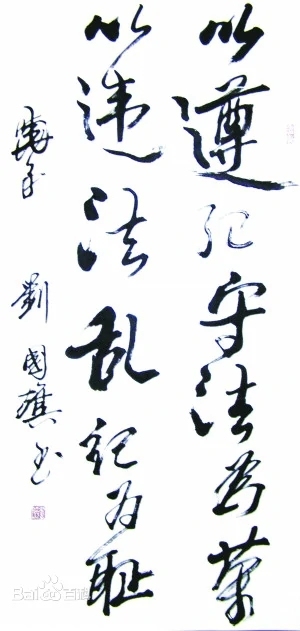 以遵纪守法为荣
以违法乱纪为耻
劉國旗书
Baidu百科